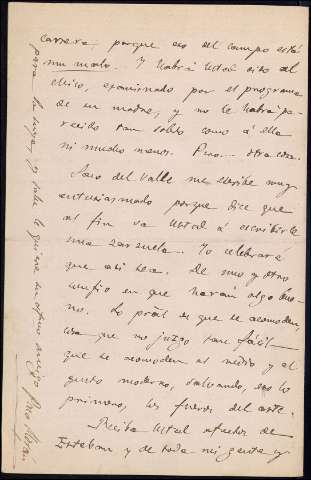 carrera, porque eso del campo está
muy malo. Y habrá Usted oido al
chico, examinado por el programa
de su madre, y no le habrá pa-
recido tan sabio como á ella
ni mucho menos. Pero... otra cosa.
Saco del Valle me escribe muy
entusiasmado porque dice que
al fin va Usted á escribirle
una zarzuela. Yo celebraré
que asi sea. De uno y otro
confio en que harán algo bue-
no. Lo pral es que se acomoden,
cosa que no juzgo tan fácil
que se acomoden al medio y al
gusto moderno, salvando, eso lo
primero, los fueros del arte.
Reciba Usted afectos de
Esteban y de toda mi gente y
para la suya, y sabe le quiere su afmo amigo